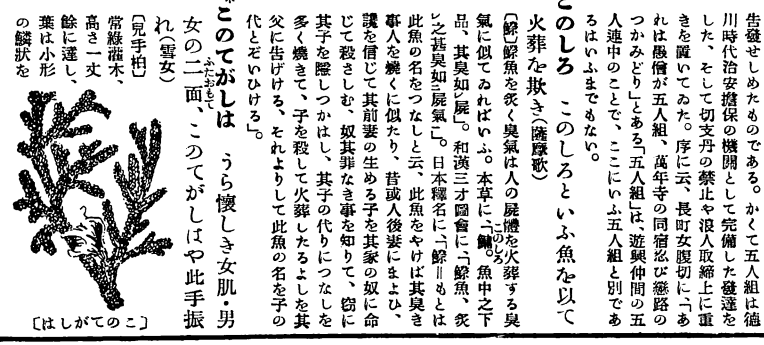 告發せしめたものである。かくて五人組は德
川時代治安擔保の機關として完備した發達を
した、そして切支丹の禁止や浪人取締上に重
きを置いてゐた。序に云、長町女腹切に、「あ
れは愚僧が五人組、萬年寺の同宿忍び戀路の
つかみどり」とある「五人組」は、遊興仲間の五
人連中のことで、ここにいふ五人組と別であ
るはいふまでもない。
このしろ このしろといふ魚を以て
火葬を欺き(薩摩歌)
〔鮗〕鮗魚を炙く臭氣は人の屍體を火葬する臭
氣に似てゐればいふ。本草に、「鯯。魚中之下
品、其臭如レ屍」。和漢三才圖會に、「鮗魚、炙
レ之甚臭如二屍氣一」。日本釋名に、「鮗〓もとは
此魚の名をつなしと云、此魚をやけば其臭き
事人を燒くに似たり、昔或人後妻にまよひ、
讒を信じて其前妻の生める子を其家の奴に命
じて殺さしむ、奴其罪なき事を知りて、窃に
其子を隱しつかはし、其子の代りにつなしを
多く燒きて、子を殺して火葬したるよしを其
父に吿げける、それよりして此魚の名を子の
代とぞいひける」。
*このてがしは うら懷しき女肌・男
女の二面、このてがしはや此手振
れ(雪女)
〔兒手柏〕
常綠灌木、
高さ一丈
餘に達し、
葉は小形
の鱗狀を
〔このてがしは〕